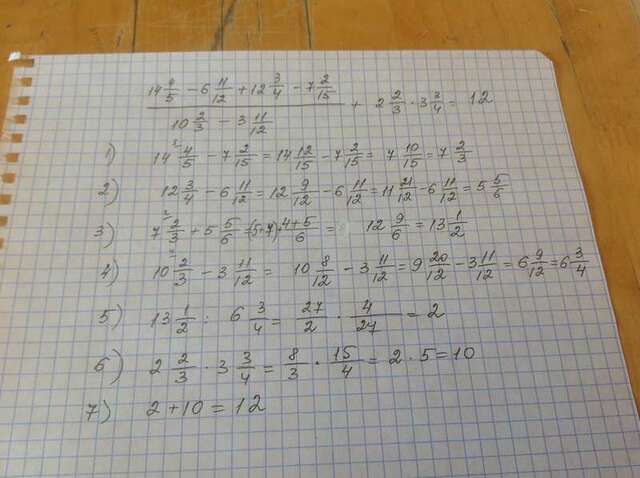 (14 4/5 − 6 11/12 + 12 3/4 − 7 2/15) / (10 2/3 − 3 11/12) + 2 2/3 · 3 3/4 = 12
1) 14 4/5 − 7 2/15 = 14 12/15 − 7 2/15 = 7 10/15 = 7 2/3
2) 12 3/4 − 6 11/12 = 12 9/12 − 6 11/12 = 11 21/12 − 6 11/12 = 5 5/6
3) 7 2/3 + 5 5/6 = (5+7) + (4+5)/6 = 12 9/6 = 13 1/2
4) 10 2/3 − 3 11/12 = 10 8/12 − 3 11/12 = 9 20/12 − 3 11/12 = 6 9/12 = 6 3/4
5) 13 1/2 : 6 3/4 = 27/2 · 4/27 = 2
6) 2 2/3 · 3 3/4 = 8/3 · 15/4 = 2 · 5 = 10
7) 2 + 10 = 12